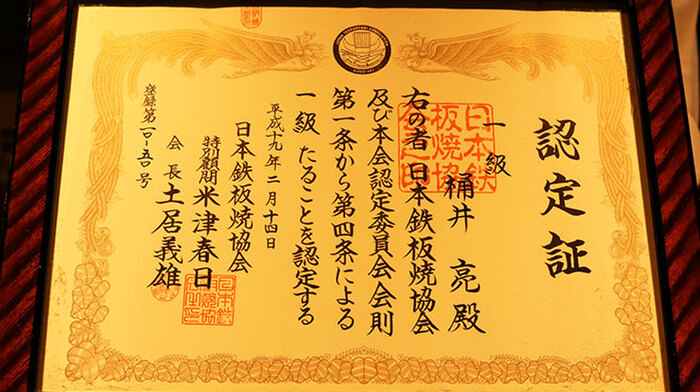 認定証
一級
桶井 亮殿
右の者 日本鉄板焼協会
及び本会認定委員会会則
第一条から第四条による
一級 たることを認定する
平成十九年二月十四日
日本鉄板焼協会
特別顧問 米津春日
会長 土居義雄
登録第一〇-五〇号
日本鉄板焼協会之印